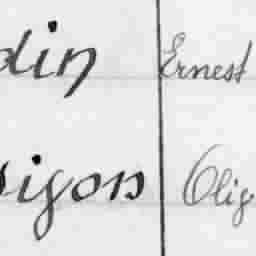 din Ernest
igons Olig